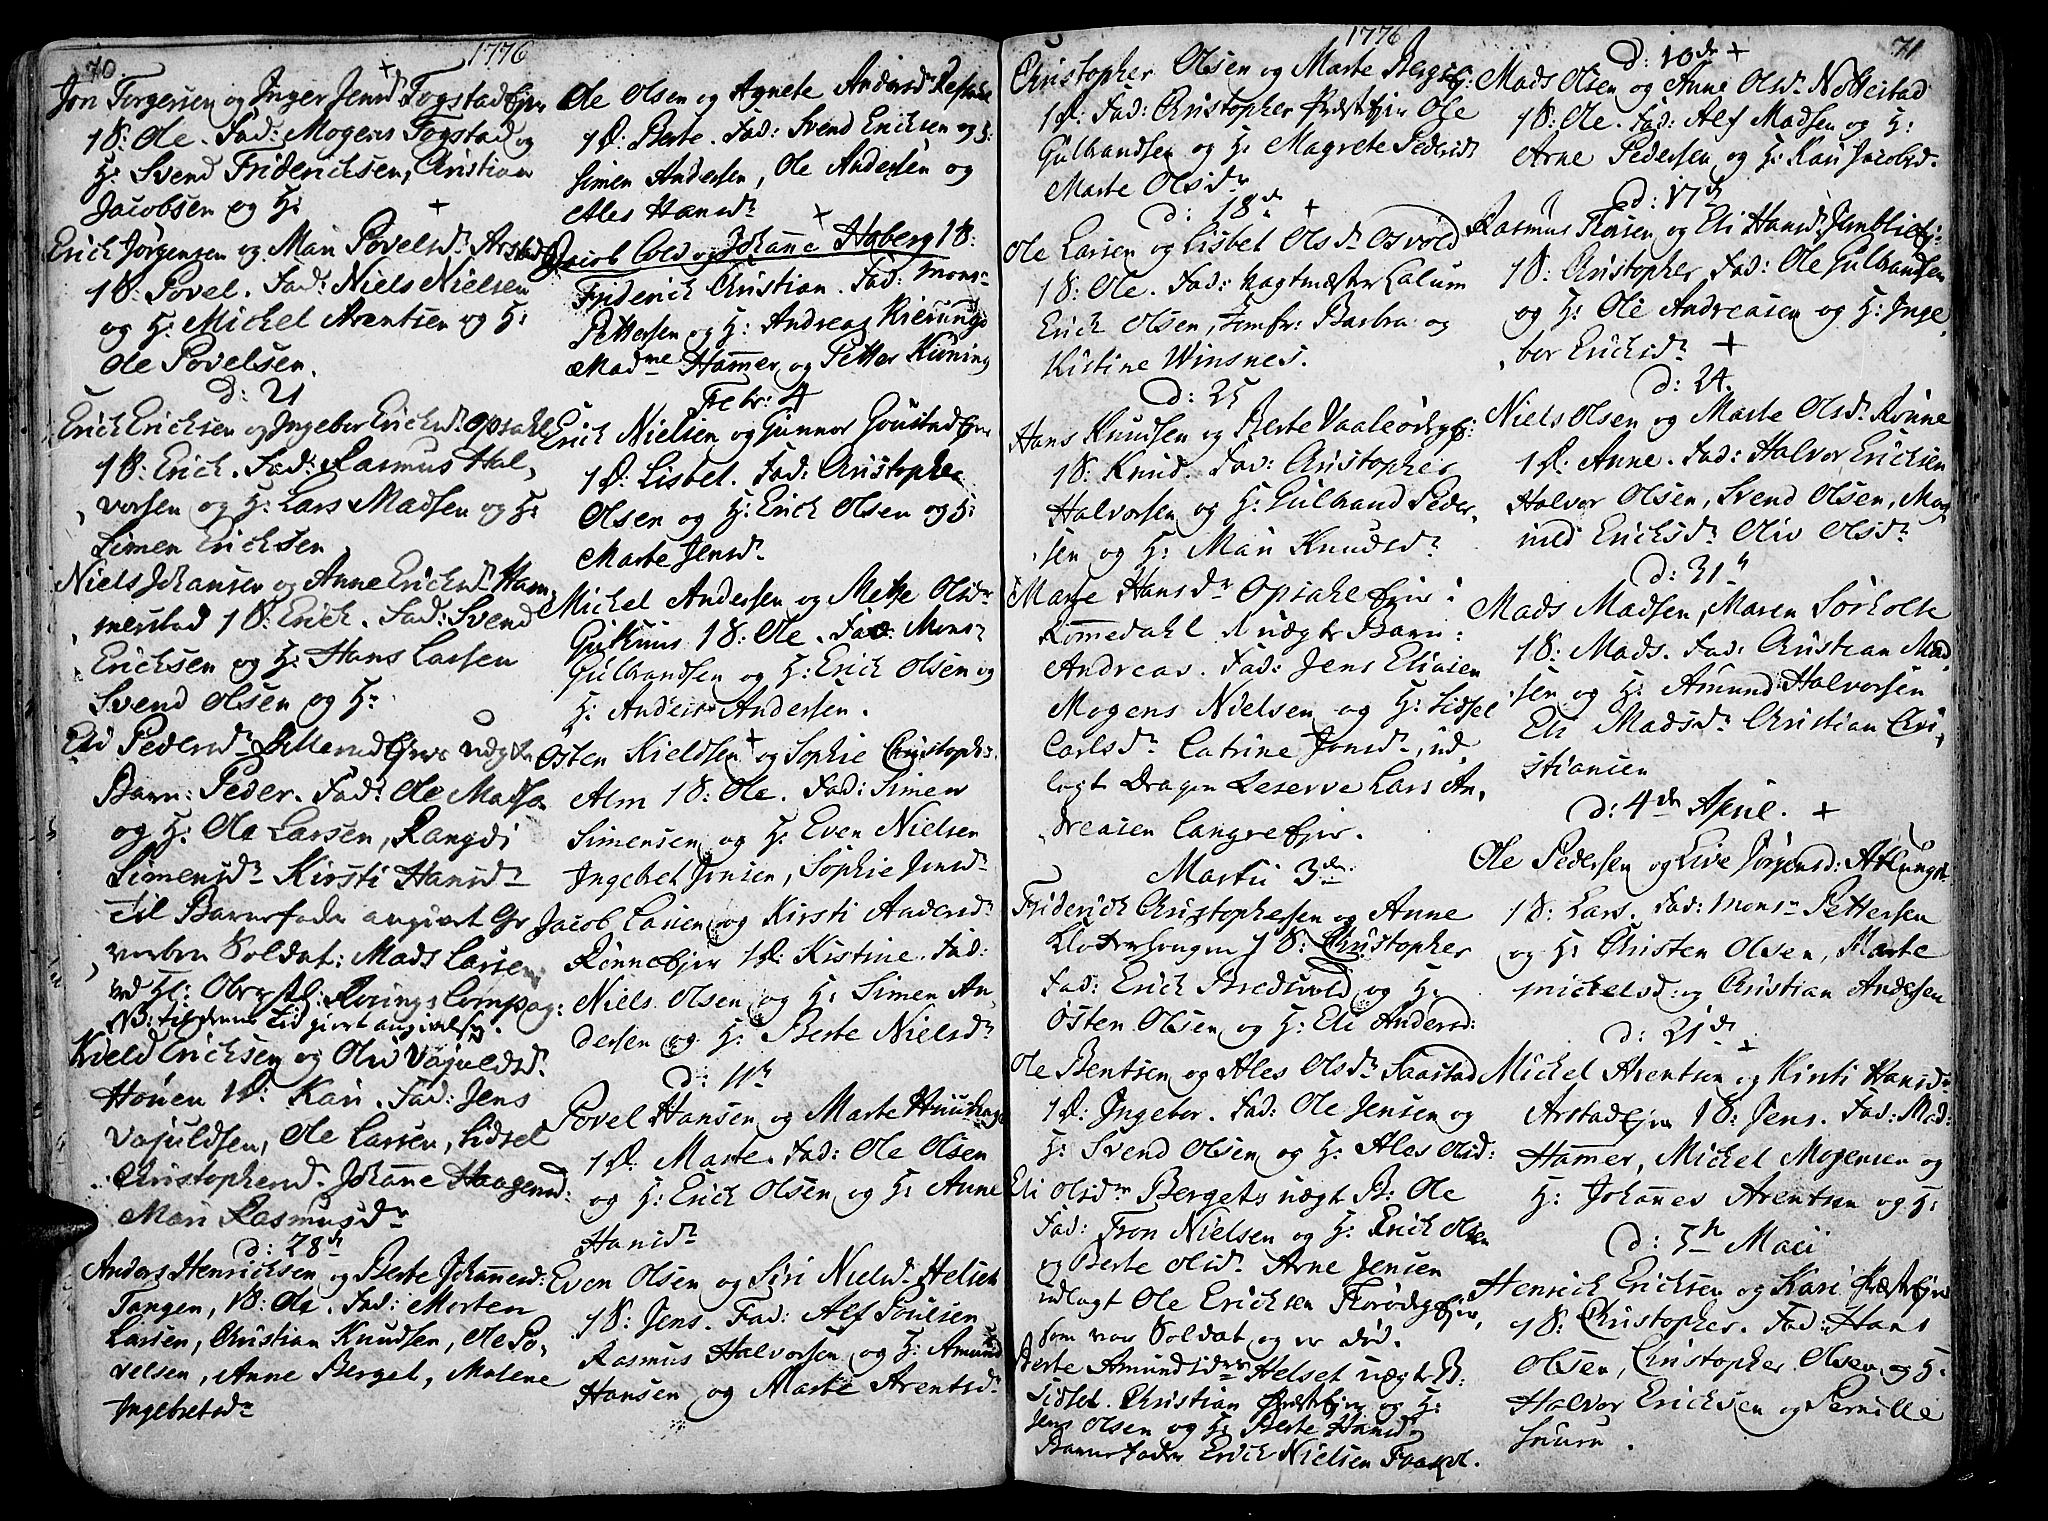 70
1776
Jon Torgersen og Inger Jensd Fogstad Ejer
1 S: Ole. Fad: Mogens Fogstad og
H: Svend Friderichsen, Christian
Jacobsen og H:
Erich Jørgensen og Mari Povelsdr Arstad
1 S: Povel. Fad: Niels Nielsen
og H: Michel Arentsen og H:
Ole Povelsen.
d: 21
Erich Erichsen og Ingebor Erichsdr Opsahl
1 S: Erich. Fad: Rasmus Hal,
vorsen og H: Lars Madsen og H:
Simen Erichsen
Niels Johansen og Anne Erichsdr Ham,
merstad 1 S: Erich. Fad: Svend
Erichsen og H: Hans Larsen
Svend Olsen og H:
Eli Pedersdr
Barn: Peder. Fad: Ole Madsen
og H: Ole Larsen, Rangdi
Simensdr Kirsti Hansdr
Til Barnefader angivet Gr
Soldat: Mads Larsen
ved Hl: Oberstl: Rørings Compag:
Kield Erichsen og Oliv Vajuldsdr
Houen 1 D: Kari. Fad: Jens
Vajuldsen, Ole Larsen, Sidsel
Christophersd. Johanne Haagensd:
Mari Rasmusdr
d: 28de
Anders Henrichsen og Berte Johannesd:
Tangen, 1 S: Ole. Fad: Morten
Larsen, Christian Knudsen, Ole Po,
velsen, Anne Berget, Malene
Ingebretsdr
Ole Olsen og Agnete Andersdr
1 D: Berte. Fad: Svend Erichsen og H:
Simen Andersen, Ole Andersen og
Ales Hansdr
Jacob Cold og Johanne Hoberg 1 S:
Friderich Christian. Fad: Monsr
Pettersen og H: Andreas
Madme Hammer og Petter
Febr: 4
Erich Nielsen og Gunnor Goustad Ejer
1 D: Lisbet. Fad: Christopher
Olsen og H: Erich Olsen og H:
Marte Jensdr
Michel Andersen og Mette Olsdr
1 S: Ole. Fad: Monsr
Gulbrandsen og H: Erich Olsen og
H: Anders Andersen.
Osten Kieldsen og Sophie Christophs.
Alm 1 S: Ole. Fad: Simen
Simensen og H: Even Nielsen
Ingebret Jonsen, Sophie Jensdr
Jacob Larsen og Kirsti Andersdr
Rønne Ejer 1 D: Kistine. Fad:
Niels Olsen og H: Simen An,
dersen og H: Berte Nielsdr
d: 11te
Povel Hansen og Marte
1 D: Marte. Fad: Ole Olsen
og H: Erich Olsen og H: Anne
Hansdr
Even Olsen og Siri Nielsdr Helset
1 S: Jens. Fad: Alf Poulsen
Rasmus Halvorsen og H: Amund
Hansen og Marte Arentsdr
1776
Christopher Olsen og Marte Berget
1 D: Fad: Christopher Præst Ejer Ole
Gulbrandsen og H: Magrete Pedersdr
Marte Olsdr
d: 18de
Ole Larsen og Lisbet Olsdr Osvold
1 S: Ole. Fad: Vagtmæster Lalum
Erich Olsen, Jomfr: Barbra og
Kistine Winsnes.
d: 25
Hans Knudsen og Berte Vaaleødeg
1 S: Knud. Fad: Christopher
Halvorsen og H: Gulbrand Peder,
sen og H: Mari Knudsdr
Marte Hansdr Opsahl Ejer:
Rommedahl 1 uægte Barn:
Andreas. Fad: Jens Eliasen
Mogens Nielsen og H: Sidsel
Carlsdr Catrine Jonsdr ud,
lagt Dragon Reserve Lars An,
dreasen Langre Ejer.
Martii 3de
Friderich Christophersen og Anne
1 S: Christopher
Fad: Erich Bredsvold og H:
Østen Olsen og H: Eli Andersd:
Ole Bentsen og Ales Olsdr Saastad
1 D: Ingebor. Fad: Ole Jensen og
H: Svend Olsen og H: Ales Olsd:
Eli Olsdr Bergets uægt B: Ole
Fad: Tron Nielsen og H: Erich Olsen
og Berte Olsdr Arne Jensen
udlagt Ole Erichsen
som var Soldat og er død.
Berte Amundsdr Helset uægt B:
Sidsel. Christian Præst Ejer og H:
Jens Olsen og H: Berte Hansdr
Barnefader Erich Nielsen
71
d: 10de
Mads Olsen og Anne Olsdr Nøttestad
1 S: Ole. Fad: Alf Madsen og H:
Arne Pedersen og H: Kari Jacobsdr
d: 17de
Rasmus Torsen og Eli Hansdr Jemblie Ej:
1 S: Christopher. Fad: Ole Gulbrandsen
og H: Ole Andreasen og H: Inge,
bor Erichsdr
d: 24.
Niels Olsen og Marte Olsdr Rønne
1 D: Anne. Fad: Halvor Erichsen
Halvor Olsen, Svend Olsen, Mag,
nild Erichsdr Oliv Olsdr
d: 31te
Mads Madsen, Maren Sørholte
1 S: Mads. Fad: Christian Mad,
sen og H: Amund Halvorsen
Eli Madsdr Christian Chri,
stiansen
d: 4de April.
Ole Pedersen og Live Jørgensd:
1 S: Lars. Fad: Monsr Pettersen
og H: Christen Olsen, Marte
Michelsd: og Christian Andersen
d: 21de
Michel Arentsen og Kirsti Hansdr
Arstad Ejer 1 S: Jens. Fad: Mad:
Hammer, Michel Mogensen og
H: Johannes Arentsen og H:
d: 5te Maii
Henrich Erichsen og Kari Præst Ejer
1 S: Christopher. Fad: Hans
Olsen, Christopher Olsen og H:
Halvor Erichsen og Pernille